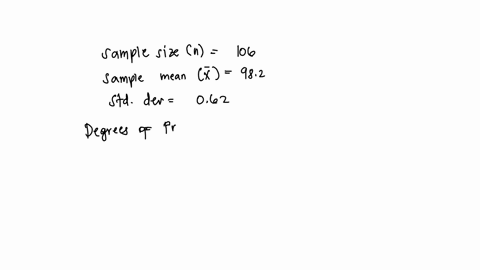 sample size (n) = 106
sample mean (x̄) = 98.2
std. dev = 0.62
Degrees of Fr